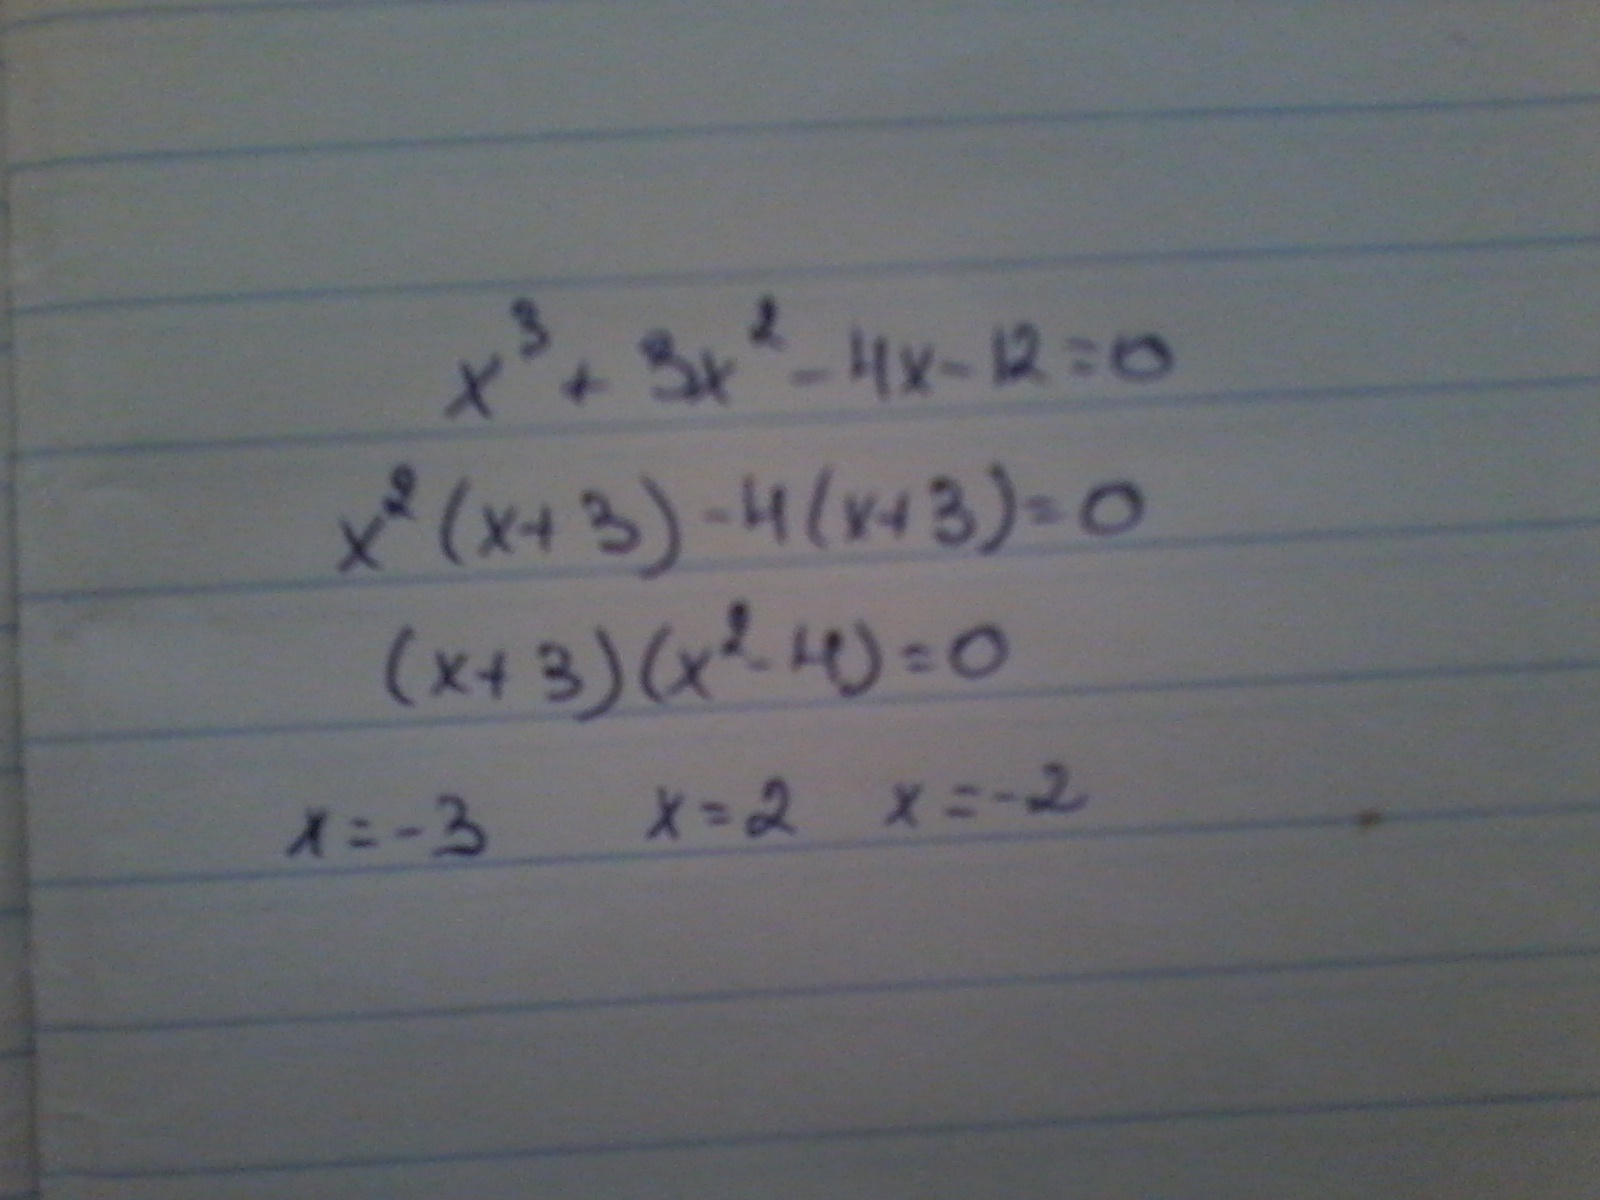 x³ + 3x² - 4x - 12 = 0
x² (x + 3) - 4 (x + 3) = 0
(x + 3) (x² - 4) = 0
x = -3 x = 2 x = -2